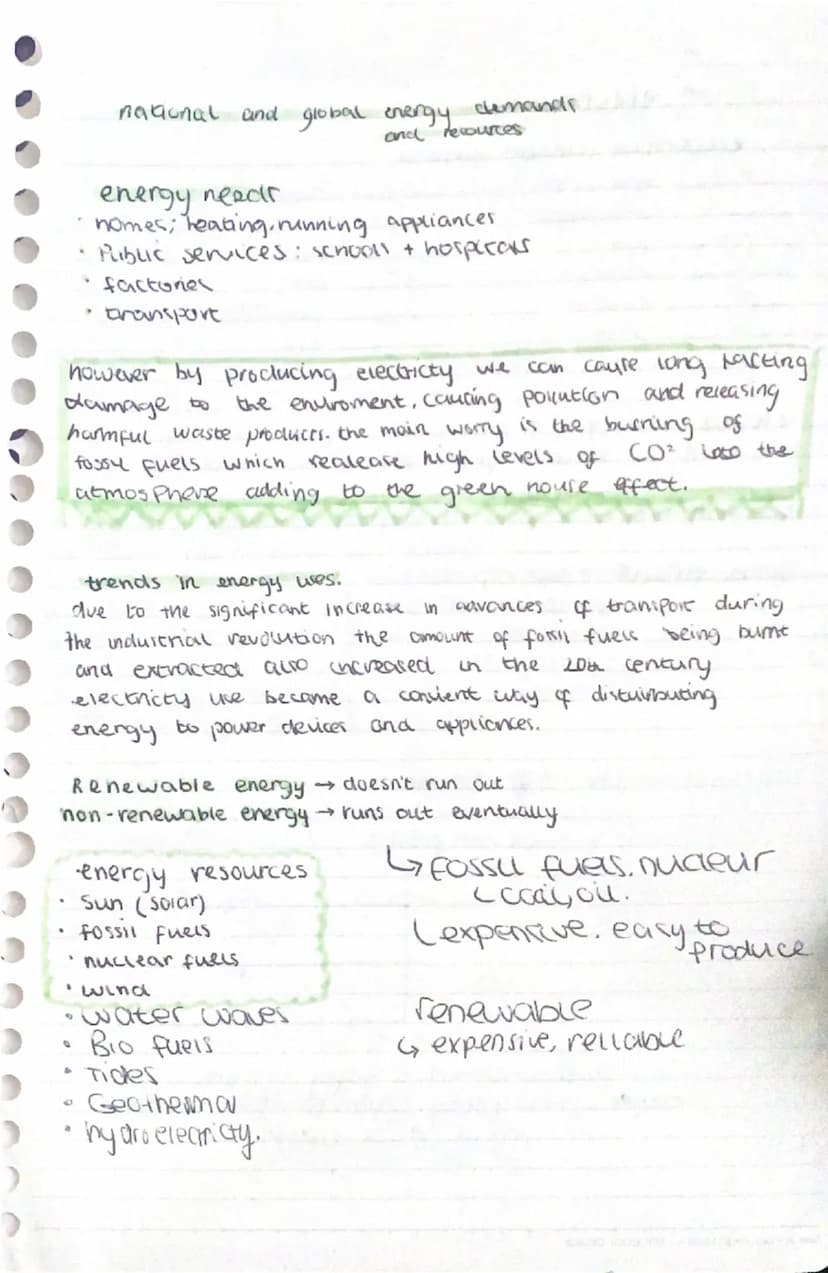 national and global energy demands
and resources
energy needs
· homes; heating, running appliances
· Public services: schools + hospitals
· factories
· transport
however by producing electricty we can cause long lasting
damage to the enviroment, causing pollution and releasing
harmful waste products. the main worry is the burning of
fossil fuels which realease high levels of CO² into the
atmosphere adding to the green house effect.
trends in energy uses.
due to the significant increase in advances of transport during
the industrial revolution the amount of fossil fuels being burnt
and extracted also increased in the 20th century
electricity use became a convient way of distuibuting
energy to power devices and appliances.
Renewable energy → doesn't run out
non-renewable energy → runs out eventually
↳ fossil fuels, nucleur
↳ coal, oil.
↳ expensive. easy to
produce
energy resources
· Sun (solar)
· fossil fuels
· nuclear fuels
· wind
· water waves
· Bio fuels
· Tides
· Geothermal
· hydroelectricty.
renewable
↳ expensive, reliable